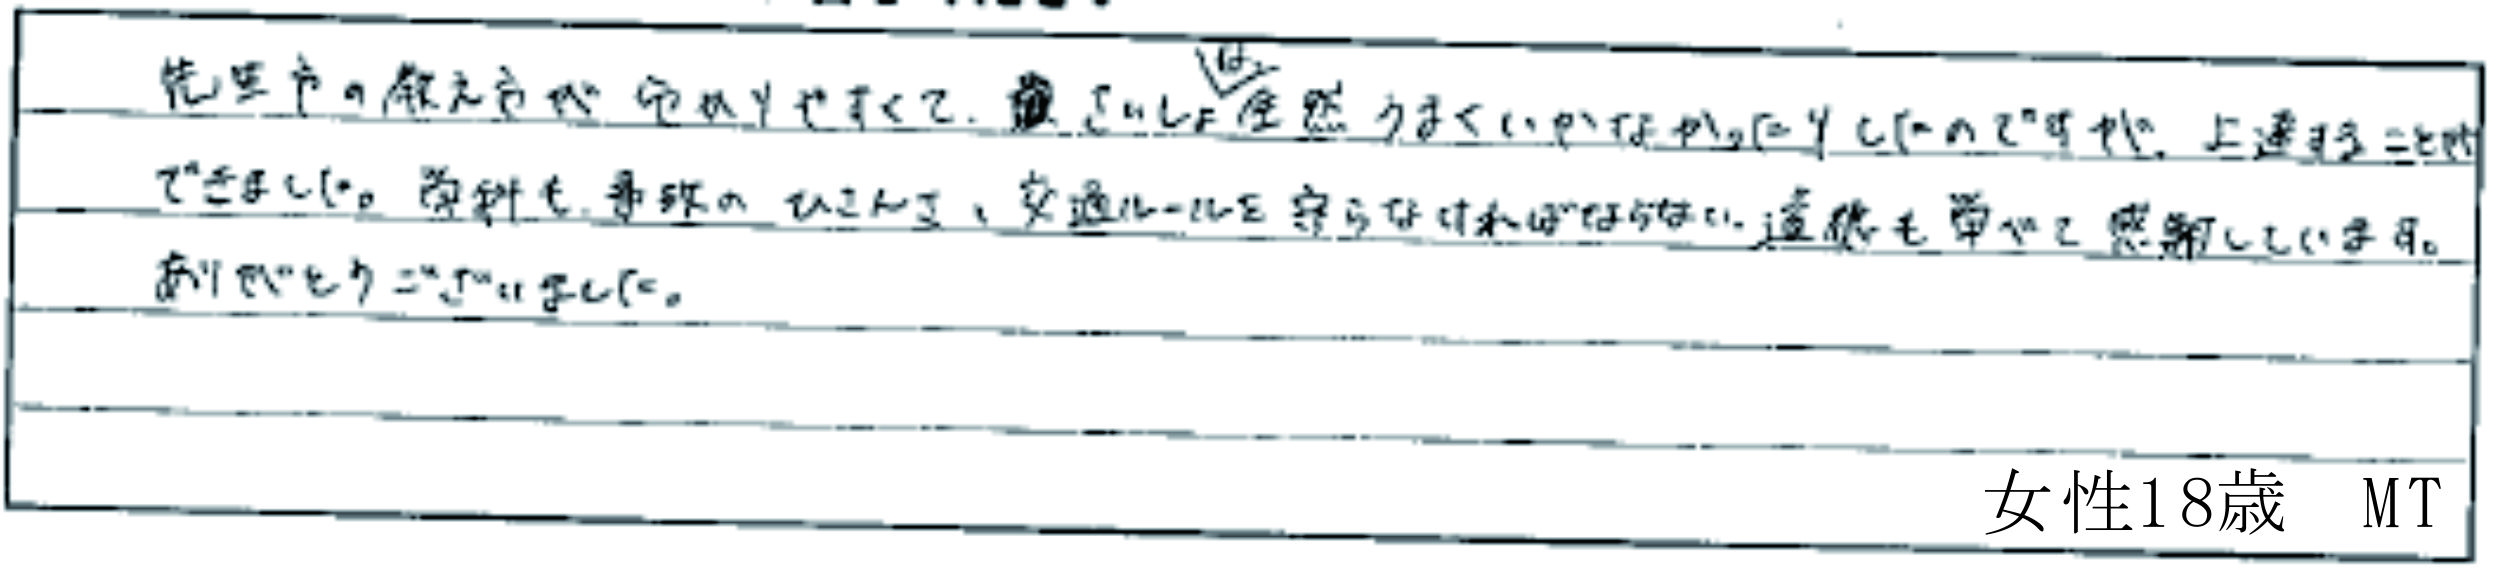 先生方の教え方が分かりやすくて、さいしょは、全然うまくいかなかったりしたのですが、上達することが
できました。学科も、事故のひさんさ、交通ルールを守らなければならない、道徳も学べて感謝しています。
ありがとうございました。
女性18歳 MT